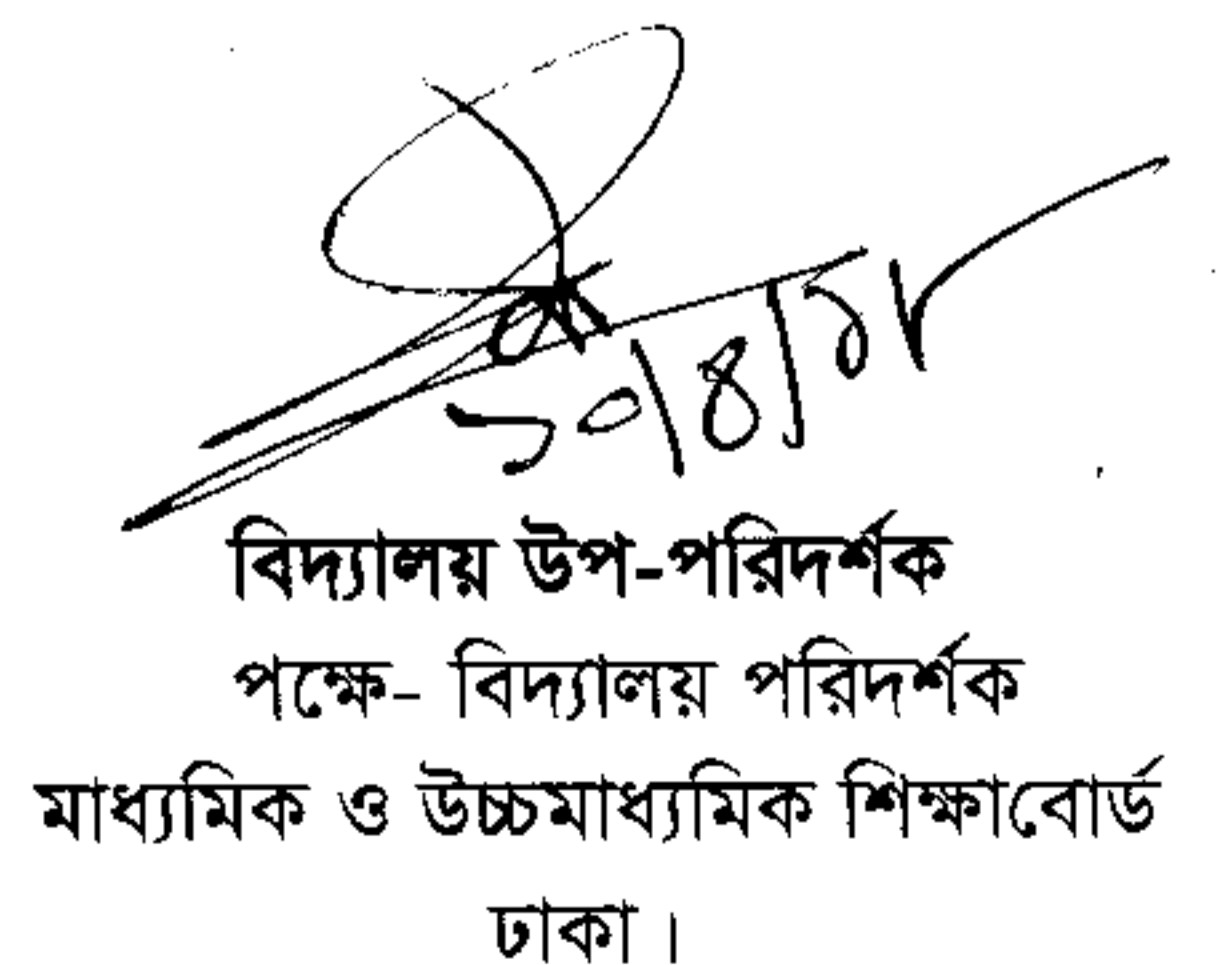 ১০/৪/১৮
বিদ্যালয় উপ-পরিদর্শক
পক্ষে- বিদ্যালয় পরিদর্শক
মাধ্যমিক ও উচ্চমাধ্যমিক শিক্ষাবোর্ড
ঢাকা।